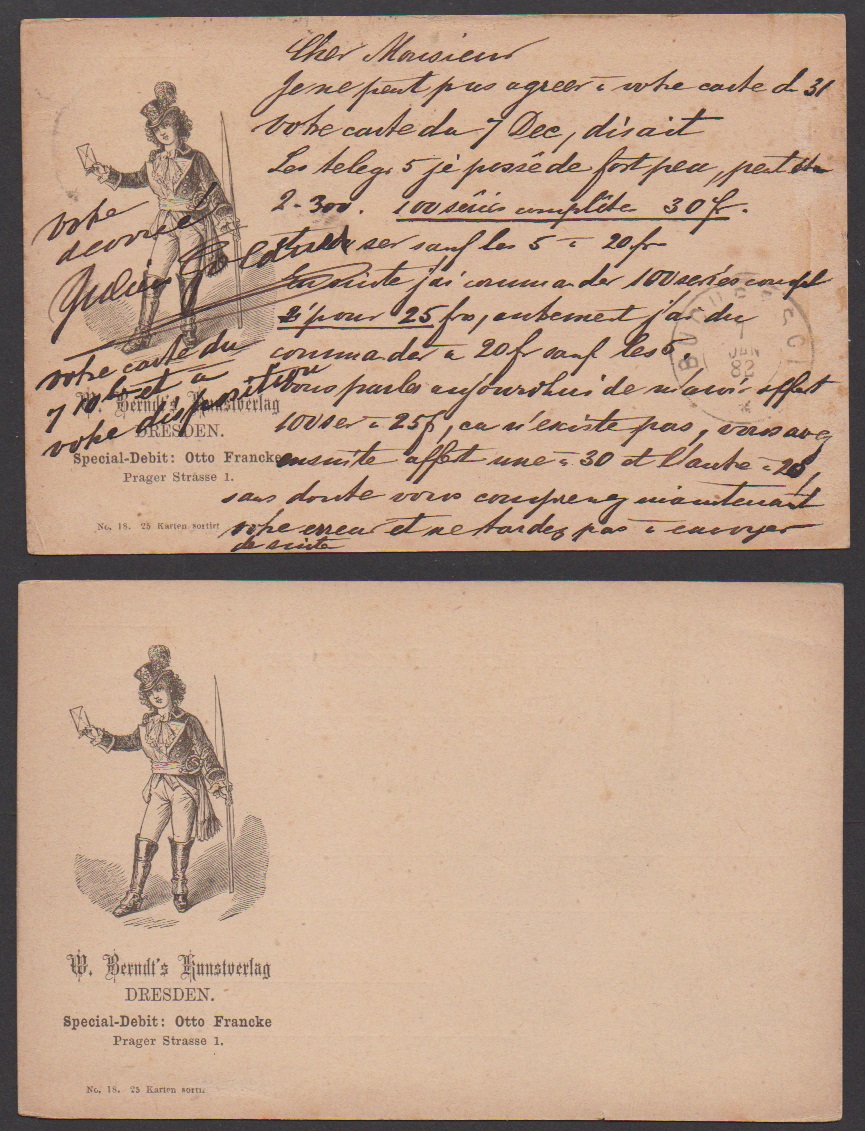 Cher Monsieur
Je ne peut pas agreer à votre carte d 31
votre carte du 7 Dec, disait
Les telegr 5 je possède fort peu, peut
2-300. 100 séries complète 30 fr.
ser sauf les 5 à 20 fr
Ensuite j'ai commander 100 series compl
à pour 25 frs, autrement j'ai du
commander à 20 fr sauf les 5.
Vous parlez aujourdhui de m'avoir offert
100 ser à 25 f, ca n'existe pas, vous avez
ensuite offert une à 30 et l'autre à 20,
sans doute vous comprenez maintenant
votre erreur et ne tardez pas à envoyer
de suite
votre
devoué
Julius Goldner
votre carte du
7 10 b et à
votre disposition
BUCURESCI
1
JAN
82
W. Berndt's Kunstverlag
DRESDEN.
Special-Debit: Otto Francke
Prager Strasse 1.
No. 18. 25 Karten sortirt
W. Berndt's Kunstverlag
DRESDEN.
Special-Debit: Otto Francke
Prager Strasse 1.
No. 18. 25 Karten sortir